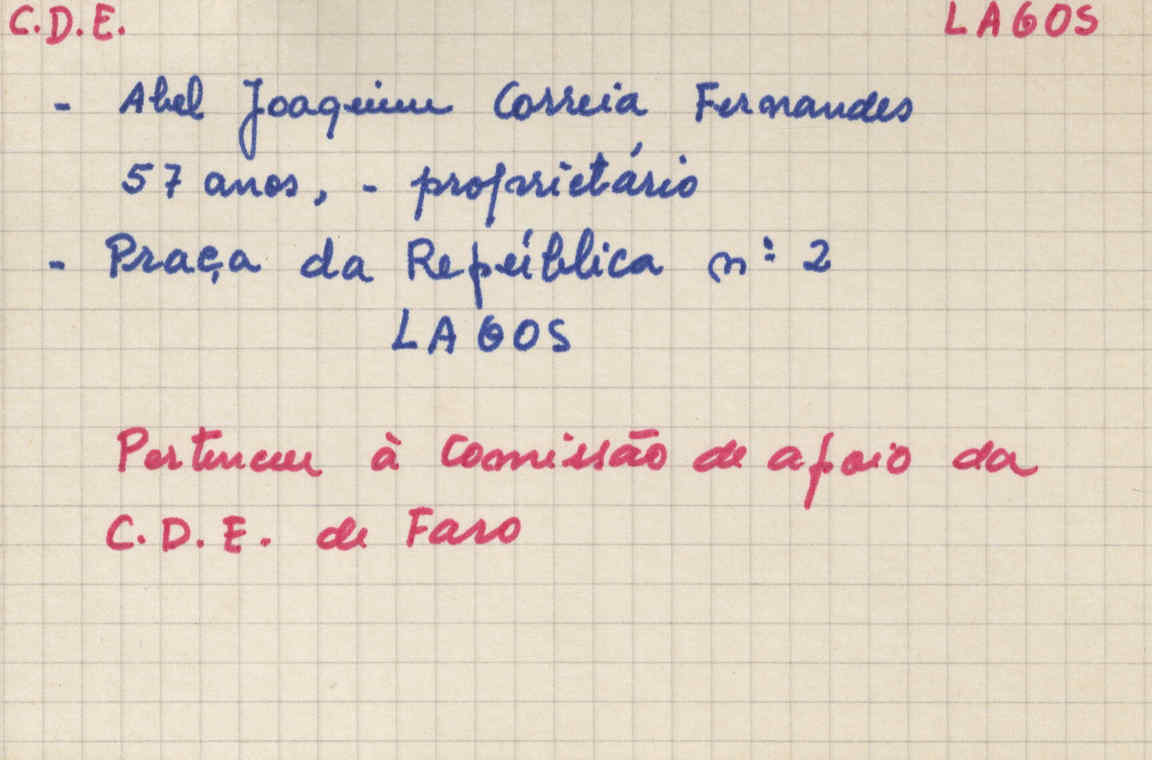 C.D.E. LAGOS
- Abel Joaquim Correia Fernandes
57 anos, - proprietário
- Praça da República nº 2
LAGOS
Pertenceu à Comissão de apoio da
C.D.E. de Faro